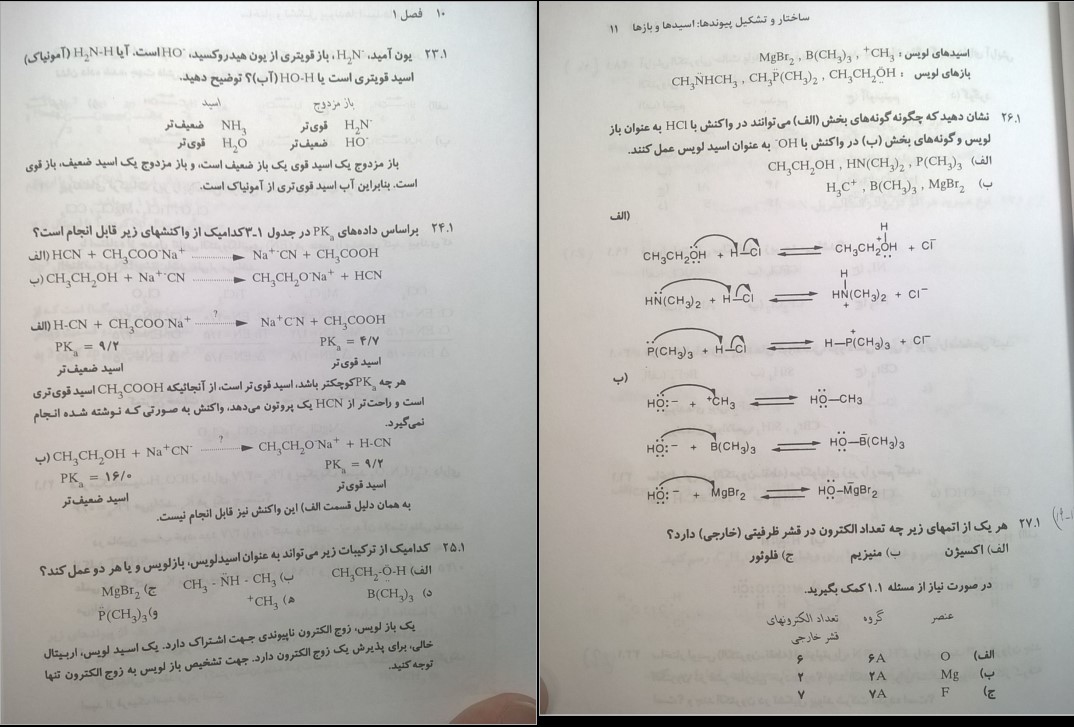 ۱۰ فصل ۱
۲۳.۱ یون آمید، H₂N⁻، باز قویتری از یون هیدروکسید، HO⁻ است. آیا H₂N-H (آمونیاک)
اسید قویتری است یا HO-H (آب)؟ توضیح دهید.
باز مزدوج اسید
H₂N⁻ قوی‌تر NH₃ ضعیف‌تر
HO⁻ ضعیف‌تر H₂O قوی‌تر
باز مزدوج یک اسید قوی یک باز ضعیف است، و باز مزدوج یک اسید ضعیف، باز قوی
است. بنابراین آب اسید قوی‌تری از آمونیاک است.
۲۴.۱ براساس داده‌های PKₐ در جدول ۱-۳ کدامیک از واکنشهای زیر قابل انجام است؟
الف) HCN + CH₃COO⁻Na⁺ → Na⁺⁻CN + CH₃COOH
ب) CH₃CH₂OH + Na⁺⁻CN → CH₃CH₂O⁻Na⁺ + HCN
الف) H-CN + CH₃COO⁻Na⁺ ? → Na⁺C⁻N + CH₃COOH
PKₐ = ۹/۲ PKₐ = ۴/۷
اسید ضعیف‌تر اسید قوی‌تر
هر چه PKₐ کوچکتر باشد، اسید قوی‌تر است، از آنجائیکه CH₃COOH اسید قوی‌تری
است و راحت‌تر از HCN یک پروتون می‌دهد، واکنش به صورتی که نوشته شده انجام
نمی‌گیرد.
ب) CH₃CH₂OH + Na⁺CN⁻ ? → CH₃CH₂O⁻Na⁺ + H-CN
PKₐ = ۱۶/۰ PKₐ = ۹/۲
اسید ضعیف‌تر اسید قوی‌تر
به همان دلیل قسمت الف) این واکنش نیز قابل انجام نیست.
۲۵.۱ کدامیک از ترکیبات زیر می‌تواند به عنوان اسیدلویس، بازلویس و یا هر دو عمل کند؟
الف) CH₃CH₂-Ö-H ب) CH₃ - N̈H - CH₃ ج) MgBr₂
د) B(CH₃)₃ ه) ⁺CH₃ و) P̈(CH₃)₃
یک باز لویس، زوج الکترون ناپیوندی جهت اشتراک دارد. یک اسید لویس، اربیتال
خالی، برای پذیرش یک زوج الکترون دارد. جهت تشخیص باز لویس به زوج الکترون تنها
توجه کنید.
ساختار و تشکیل پیوندها: اسیدها و بازها ۱۱
اسیدهای لویس : MgBr₂ , B(CH₃)₃ , ⁺CH₃
بازهای لویس : CH₃N̈HCH₃ , CH₃P̈(CH₃)₂ , CH₃CH₂ÖH
۲۶.۱ نشان دهید که چگونه گونه‌های بخش (الف) می‌توانند در واکنش با HCl به عنوان باز
لویس و گونه‌های بخش (ب) در واکنش با OH⁻ به عنوان اسید لویس عمل کنند.
الف) CH₃CH₂OH , HN(CH₃)₂ , P(CH₃)₃
ب) H₃C⁺ , B(CH₃)₃ , MgBr₂
الف)
H
CH₃CH₂ÖH + H—Cl ⇌ CH₃CH₂ÖH⁺ + Cl⁻
H
HN̈(CH₃)₂ + H—Cl ⇌ HN(CH₃)₂⁺ + Cl⁻
P̈(CH₃)₃ + H—Cl ⇌ H—P⁺(CH₃)₃ + Cl⁻
ب)
HÖ:⁻ + ⁺CH₃ ⇌ HÖ—CH₃
HÖ:⁻ + B(CH₃)₃ ⇌ HÖ—B⁻(CH₃)₃
HÖ:⁻ + MgBr₂ ⇌ HÖ—M⁻gBr₂
۲۷.۱ هر یک از اتمهای زیر چه تعداد الکترون در قشر ظرفیتی (خارجی) دارد؟
الف) اکسیژن ب) منیزیم ج) فلوئور
در صورت نیاز از مسئله ۱.۱ کمک بگیرید.
عنصر گروه تعداد الکترونهای
قشر خارجی
الف) O ۶A ۶
ب) Mg ۲A ۲
ج) F ۷A ۷